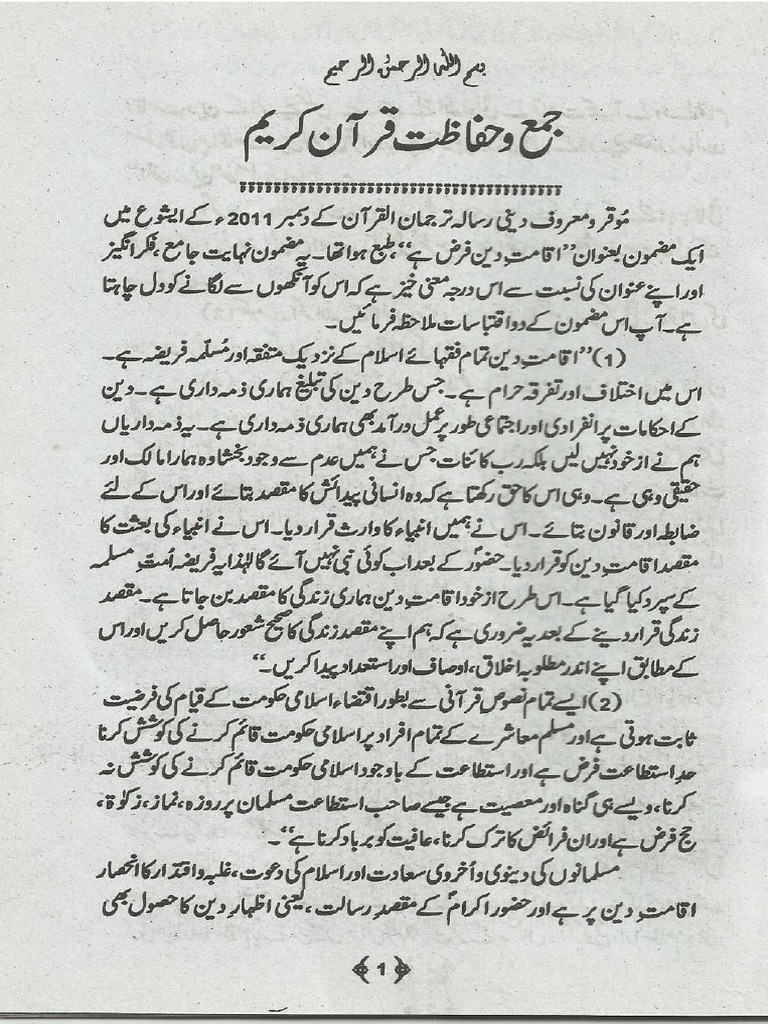 بسم اللہ الرحمٰن الرحیم
جمع و حفاظت قرآن کریم
مؤقر و معروف دینی رسالہ ترجمان القرآن کے دسمبر 2011ء کے ایشوع میں
ایک مضمون بعنوان ”اقامتِ دین فرض ہے“، طبع ہوا تھا۔ یہ مضمون نہایت جامع، فکر انگیز
اور اپنے عنوان کی نسبت سے اس درجہ معنی خیز ہے کہ اس کو آنکھوں سے لگانے کو دل چاہتا
ہے۔ آپ اس مضمون کے دو اقتباسات ملاحظہ فرمائیں۔
(1) ”اقامتِ دین تمام فقہائے اسلام کے نزدیک متفقہ اور مُسلّمہ فریضہ ہے۔
اس میں اختلاف اور تفرقہ حرام ہے۔ جس طرح دین کی تبلیغ ہماری ذمہ داری ہے۔ دین
کے احکامات پر انفرادی اور اجتماعی طور پر عمل درآمد بھی ہماری ذمہ داری ہے۔ یہ ذمہ داریاں
ہم نے از خود نہیں لیں بلکہ رب کائنات جس نے ہمیں عدم سے وجود بخشا وہ ہمارا مالک اور
حقیقی وہی ہے۔ وہی اس کا حق رکھتا ہے کہ وہ انسانی پیدائش کا مقصد بتائے اور اس کے لئے
ضابطہ اور قانون بتائے۔ اس نے ہمیں انبیاء کا وارث قرار دیا۔ اس نے انبیاء کی بعثت کا
مقصد اقامتِ دین کو قرار دیا۔ حضورؐ کے بعد اب کوئی نبی نہیں آئے گا لہٰذا یہ فریضہ اُمتِ مسلمہ
کے سپرد کیا گیا ہے۔ اس طرح از خود اقامتِ دین ہماری زندگی کا مقصد بن جاتا ہے۔ مقصد
زندگی قرار دینے کے بعد یہ ضروری ہے کہ ہم اپنے مقصد زندگی کا صحیح شعور حاصل کریں اور اس
کے مطابق اپنے اندر مطلوبہ اخلاق، اوصاف اور استعداد پیدا کریں۔“
(2) ایسے تمام نصوصِ قرآنی سے بطور اقتضاء اسلامی حکومت کے قیام کی فرضیت
ثابت ہوتی ہے اور مسلم معاشرے کے تمام افراد پر اسلامی حکومت قائم کرنے کی کوشش کرنا
حدِ استطاعت فرض ہے اور استطاعت کے باوجود اسلامی حکومت قائم کرنے کی کوشش نہ
کرنا، ویسے ہی گناہ اور معصیت ہے جیسے صاحب استطاعت مسلمان پر روزہ، نماز، زکوٰۃ،
حج فرض ہے اور ان فرائض کا ترک کرنا، عافیت کو برباد کرنا ہے“۔
مسلمانوں کی دینوی و اُخروی سعادت اور اسلام کی دعوت، غلبہ و اقتدار کا انحصار
اقامتِ دین پر ہے اور حضور اکرامؐ کے مقصدِ رسالت، یعنی اظہارِ دین کا حصول بھی
﴿1﴾